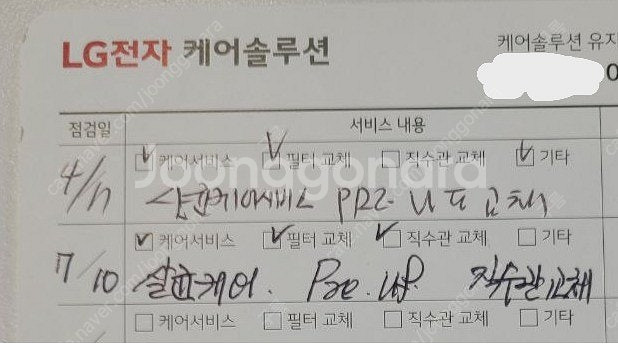 LG전자 케어솔루션
케어솔루션 유지
점검일 서비스 내용
케어서비스 필터 교체 직수관 교체 기타
4/17 살균케어서비스 PRE UF 교체
케어서비스 필터 교체 직수관 교체 기타
7/10 살균케어. Pre. UF. 직수관교체
케어서비스 필터 교체 직수관 교체 기타
Joonggonara